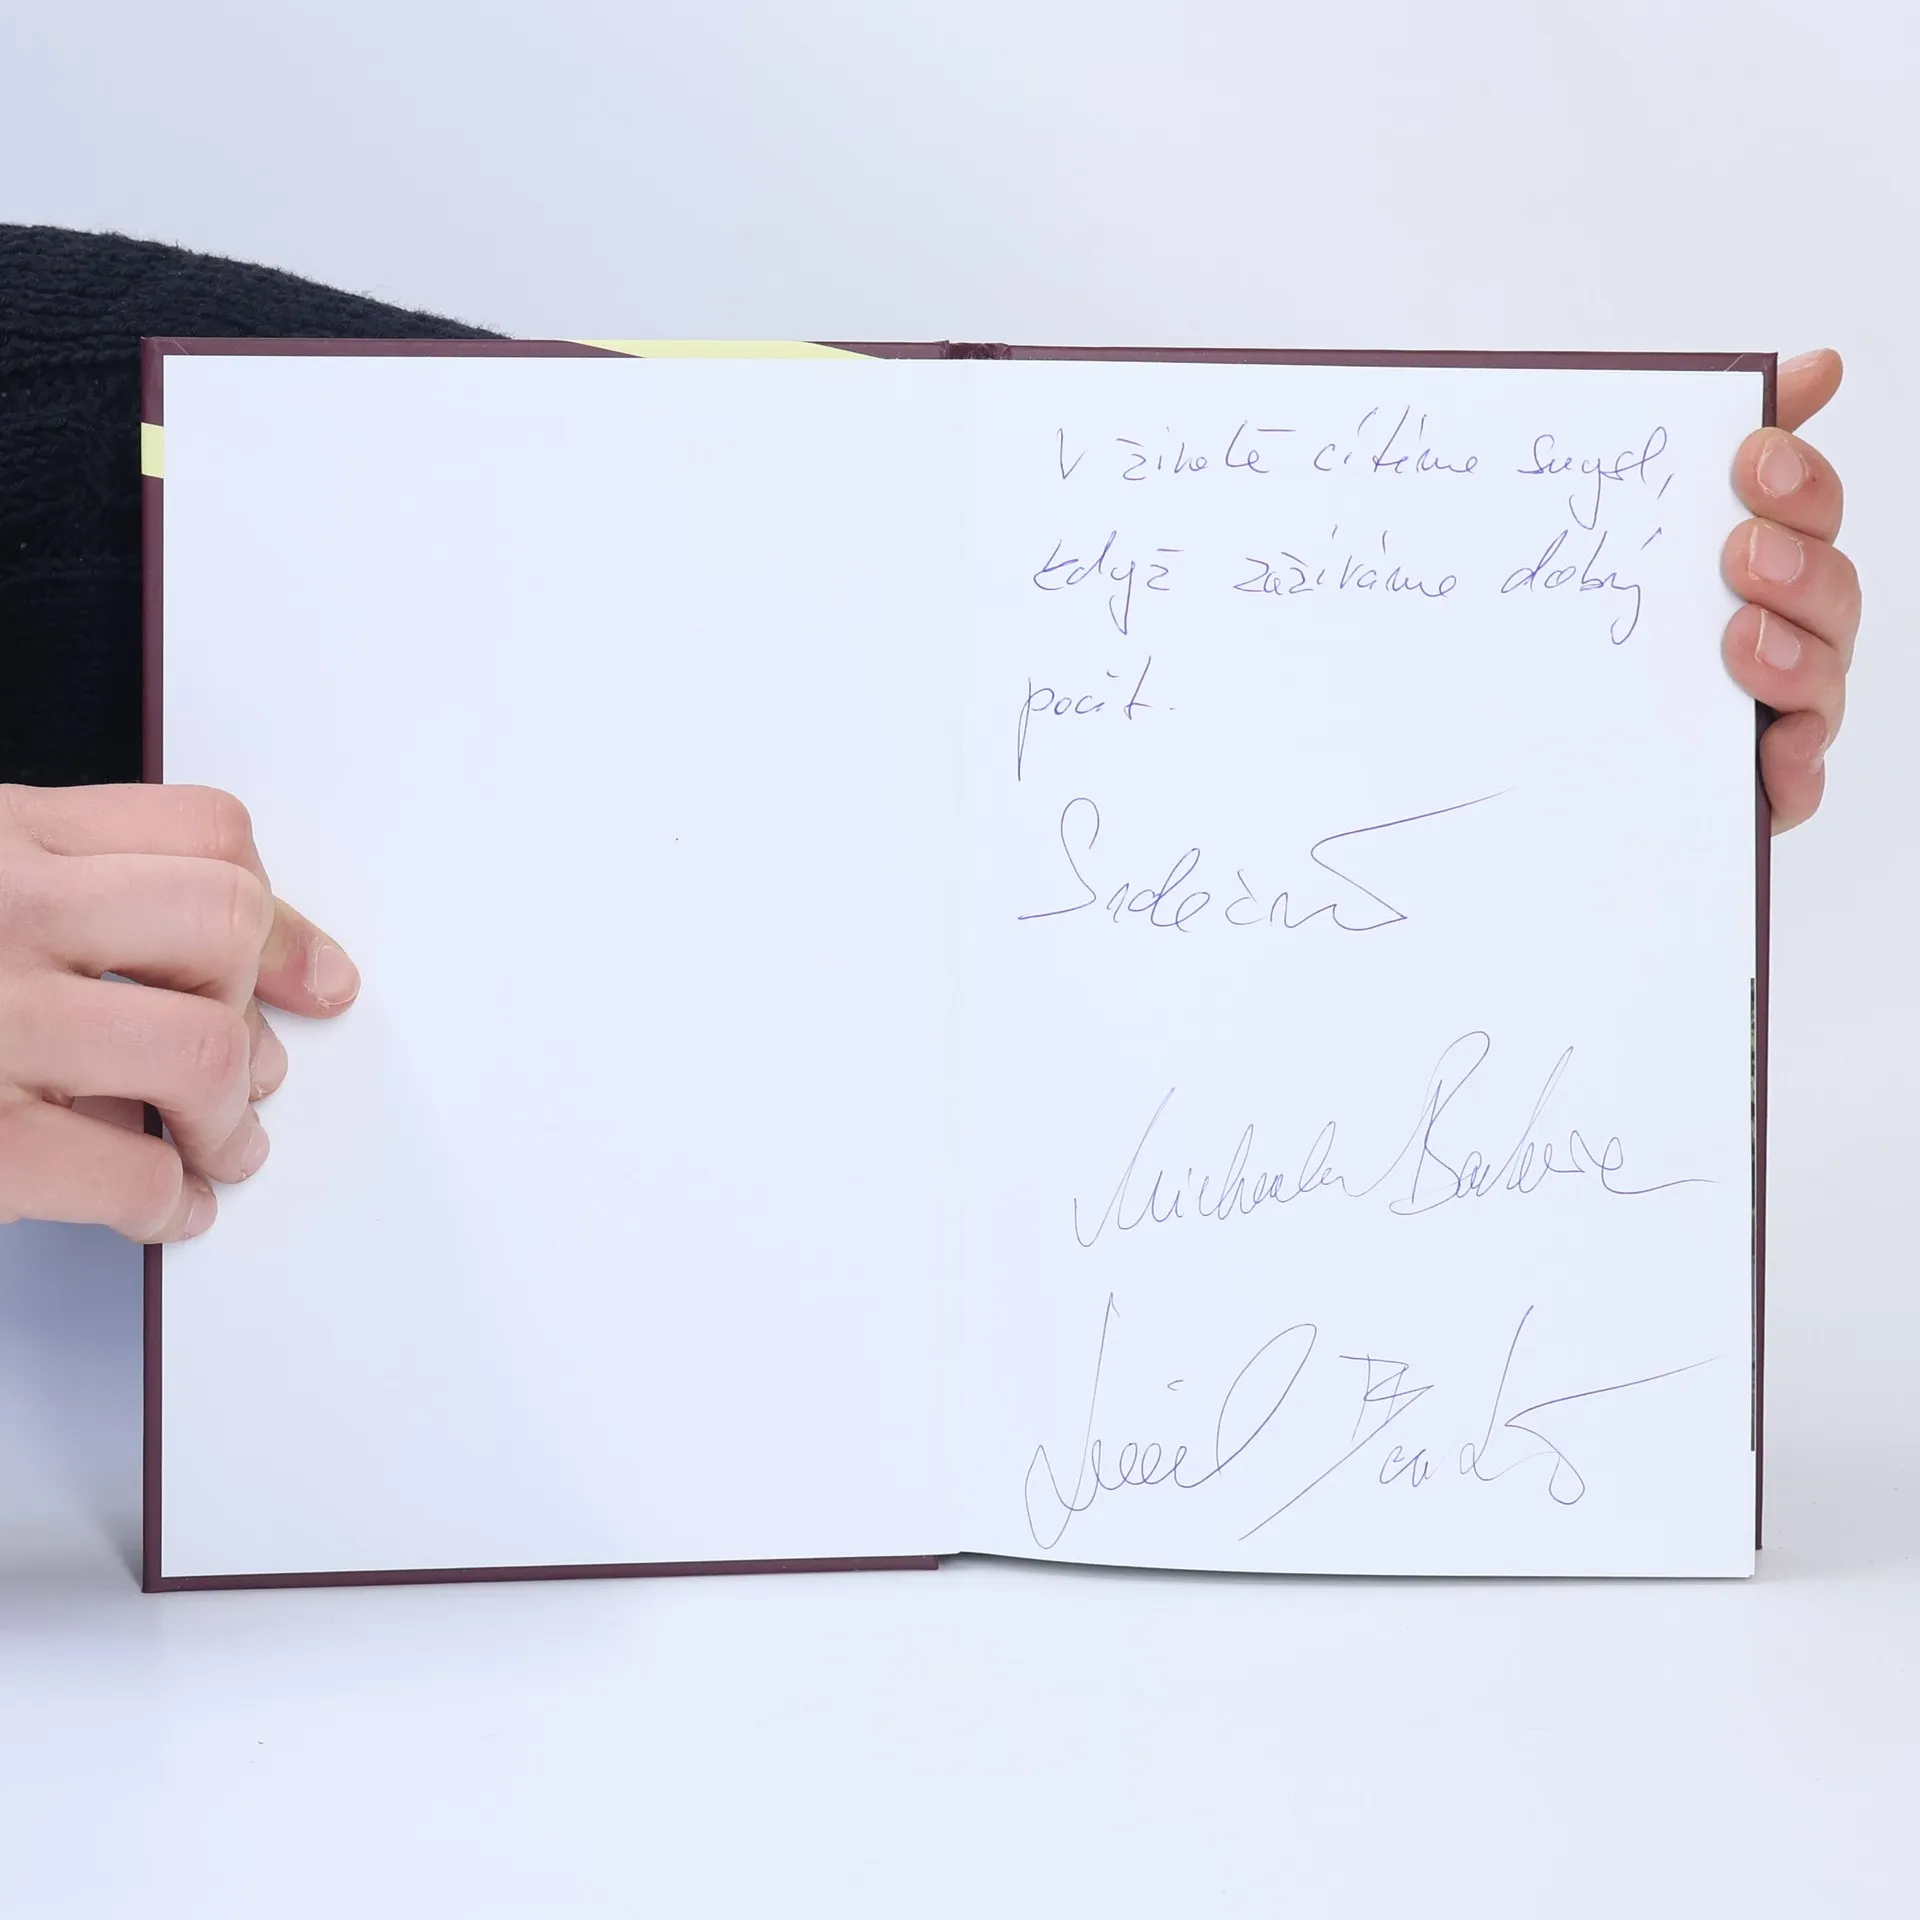 V životě cítíme smysl,
když zažíváme dobrý
pocit.
Srdečně
Michaela